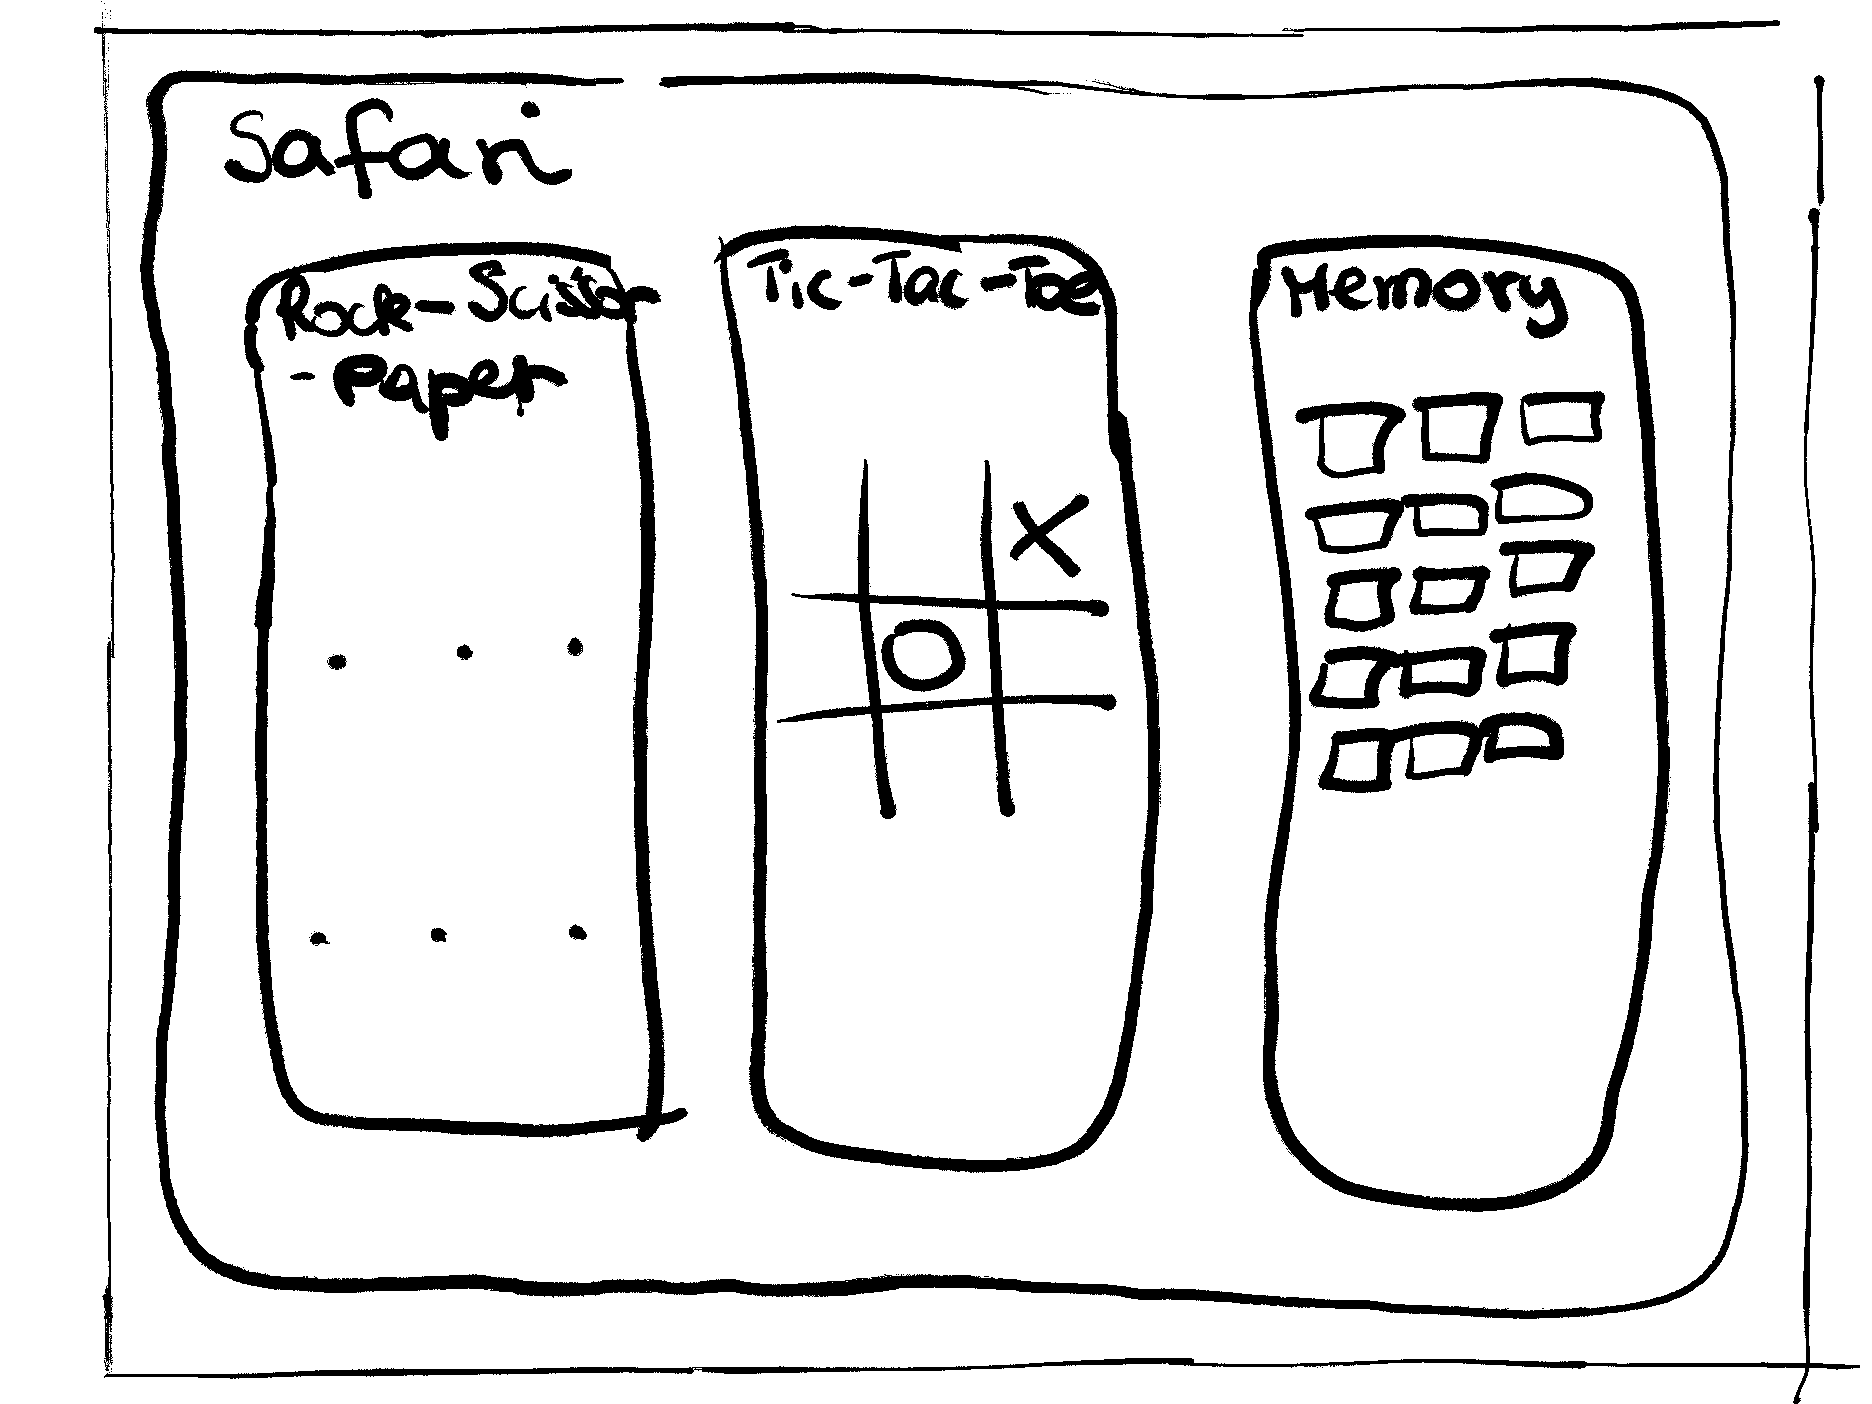 Safari
Rock-Scissor
-Paper
Tic-Tac-Toe
X
O
Memory